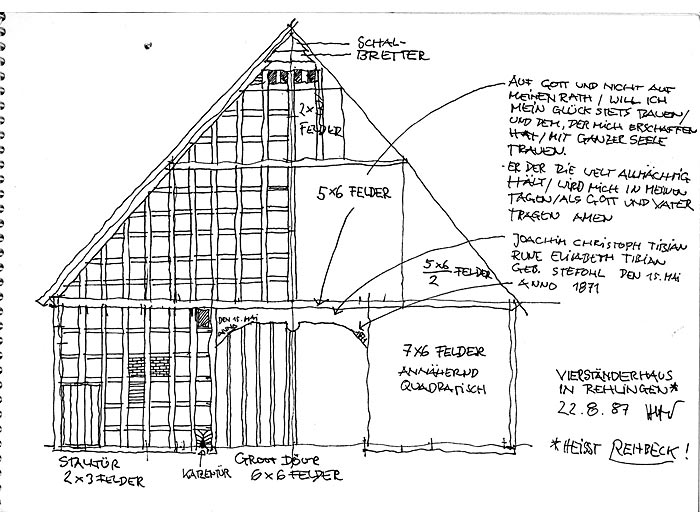 SCHAL-
BRETTER
2×
FELDER
5×6 FELDER
5×6/2 FELDER
AUF GOTT UND NICHT AUF
MEINEN RATH / WILL ICH
MEIN GLÜCK STETS BAUEN /
UND DEM, DER MICH ERSCHAFFEN
HAT / MIT GANZER SEELE
TRAUEN.
- ER DER DIE WELT ALLMÄCHTIG
HÄLT / WIRD MICH IN MEINEN
TAGEN / ALS GOTT UND VATER
TRAGEN AMEN
JOACHIM CHRISTOPH TIBIAN
ELISABETH TIBIAN
GEB. STEFOHL DEN 15. MAI
ANNO 1871
DEN 15. MAI
7×6 FELDER
ANNÄHERND
QUADRATISCH
VIERSTÄNDERHAUS
IN REHLINGEN*
22.8.87
*HEISST REHBECK!
STALLTÜR
2×3 FELDER
KATZENTÜR
GROOT DÖÖR
6×6 FELDER